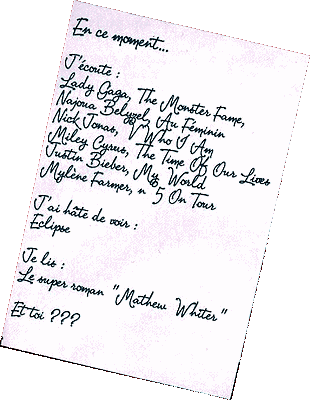 En ce moment...
J'écoute :
Lady Gaga, The Monster Fame,
Najoua Belyzel, Au Féminin
Nick Jonas, Who I Am
Miley Cyrus, The Time Of Our Lives
Justin Bieber, My World
Mylène Farmer, n°5 On Tour
J'ai hâte de voir :
Eclipse
Je lis :
Le super roman "Mathew Whiter"
Et toi ???